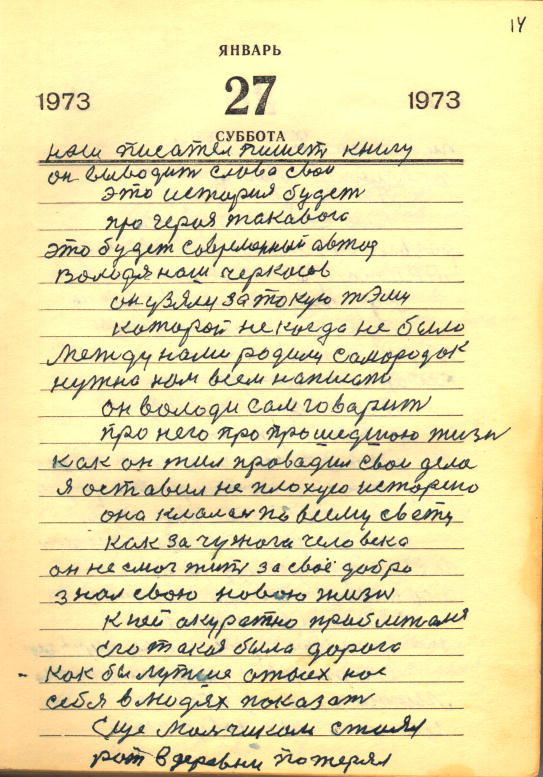 14
ЯНВАРЬ
1973 27 1973
СУББОТА
наш писател пишет книгу
он выводит слова свои
это история будет
про героя такавого
это будет современный автор
Володя наш черкасов
он узял за такую тэму
которой некогда не было
Между нами родилу самородок
нужна нам всем написат
он володи сам говарит
про него про прошедшою жизн
как он жил провадил свои дела
я оставил не плохую историю
она клалас по всему свету
как за чужога человека
он не смог жит за своё добро
знал свою новою жизн
к ней акуратно приближаля
его такая была дорога
как бы лутше о нас
себя в людях показат
Еще малчиком стоял
рот в деревни потерял